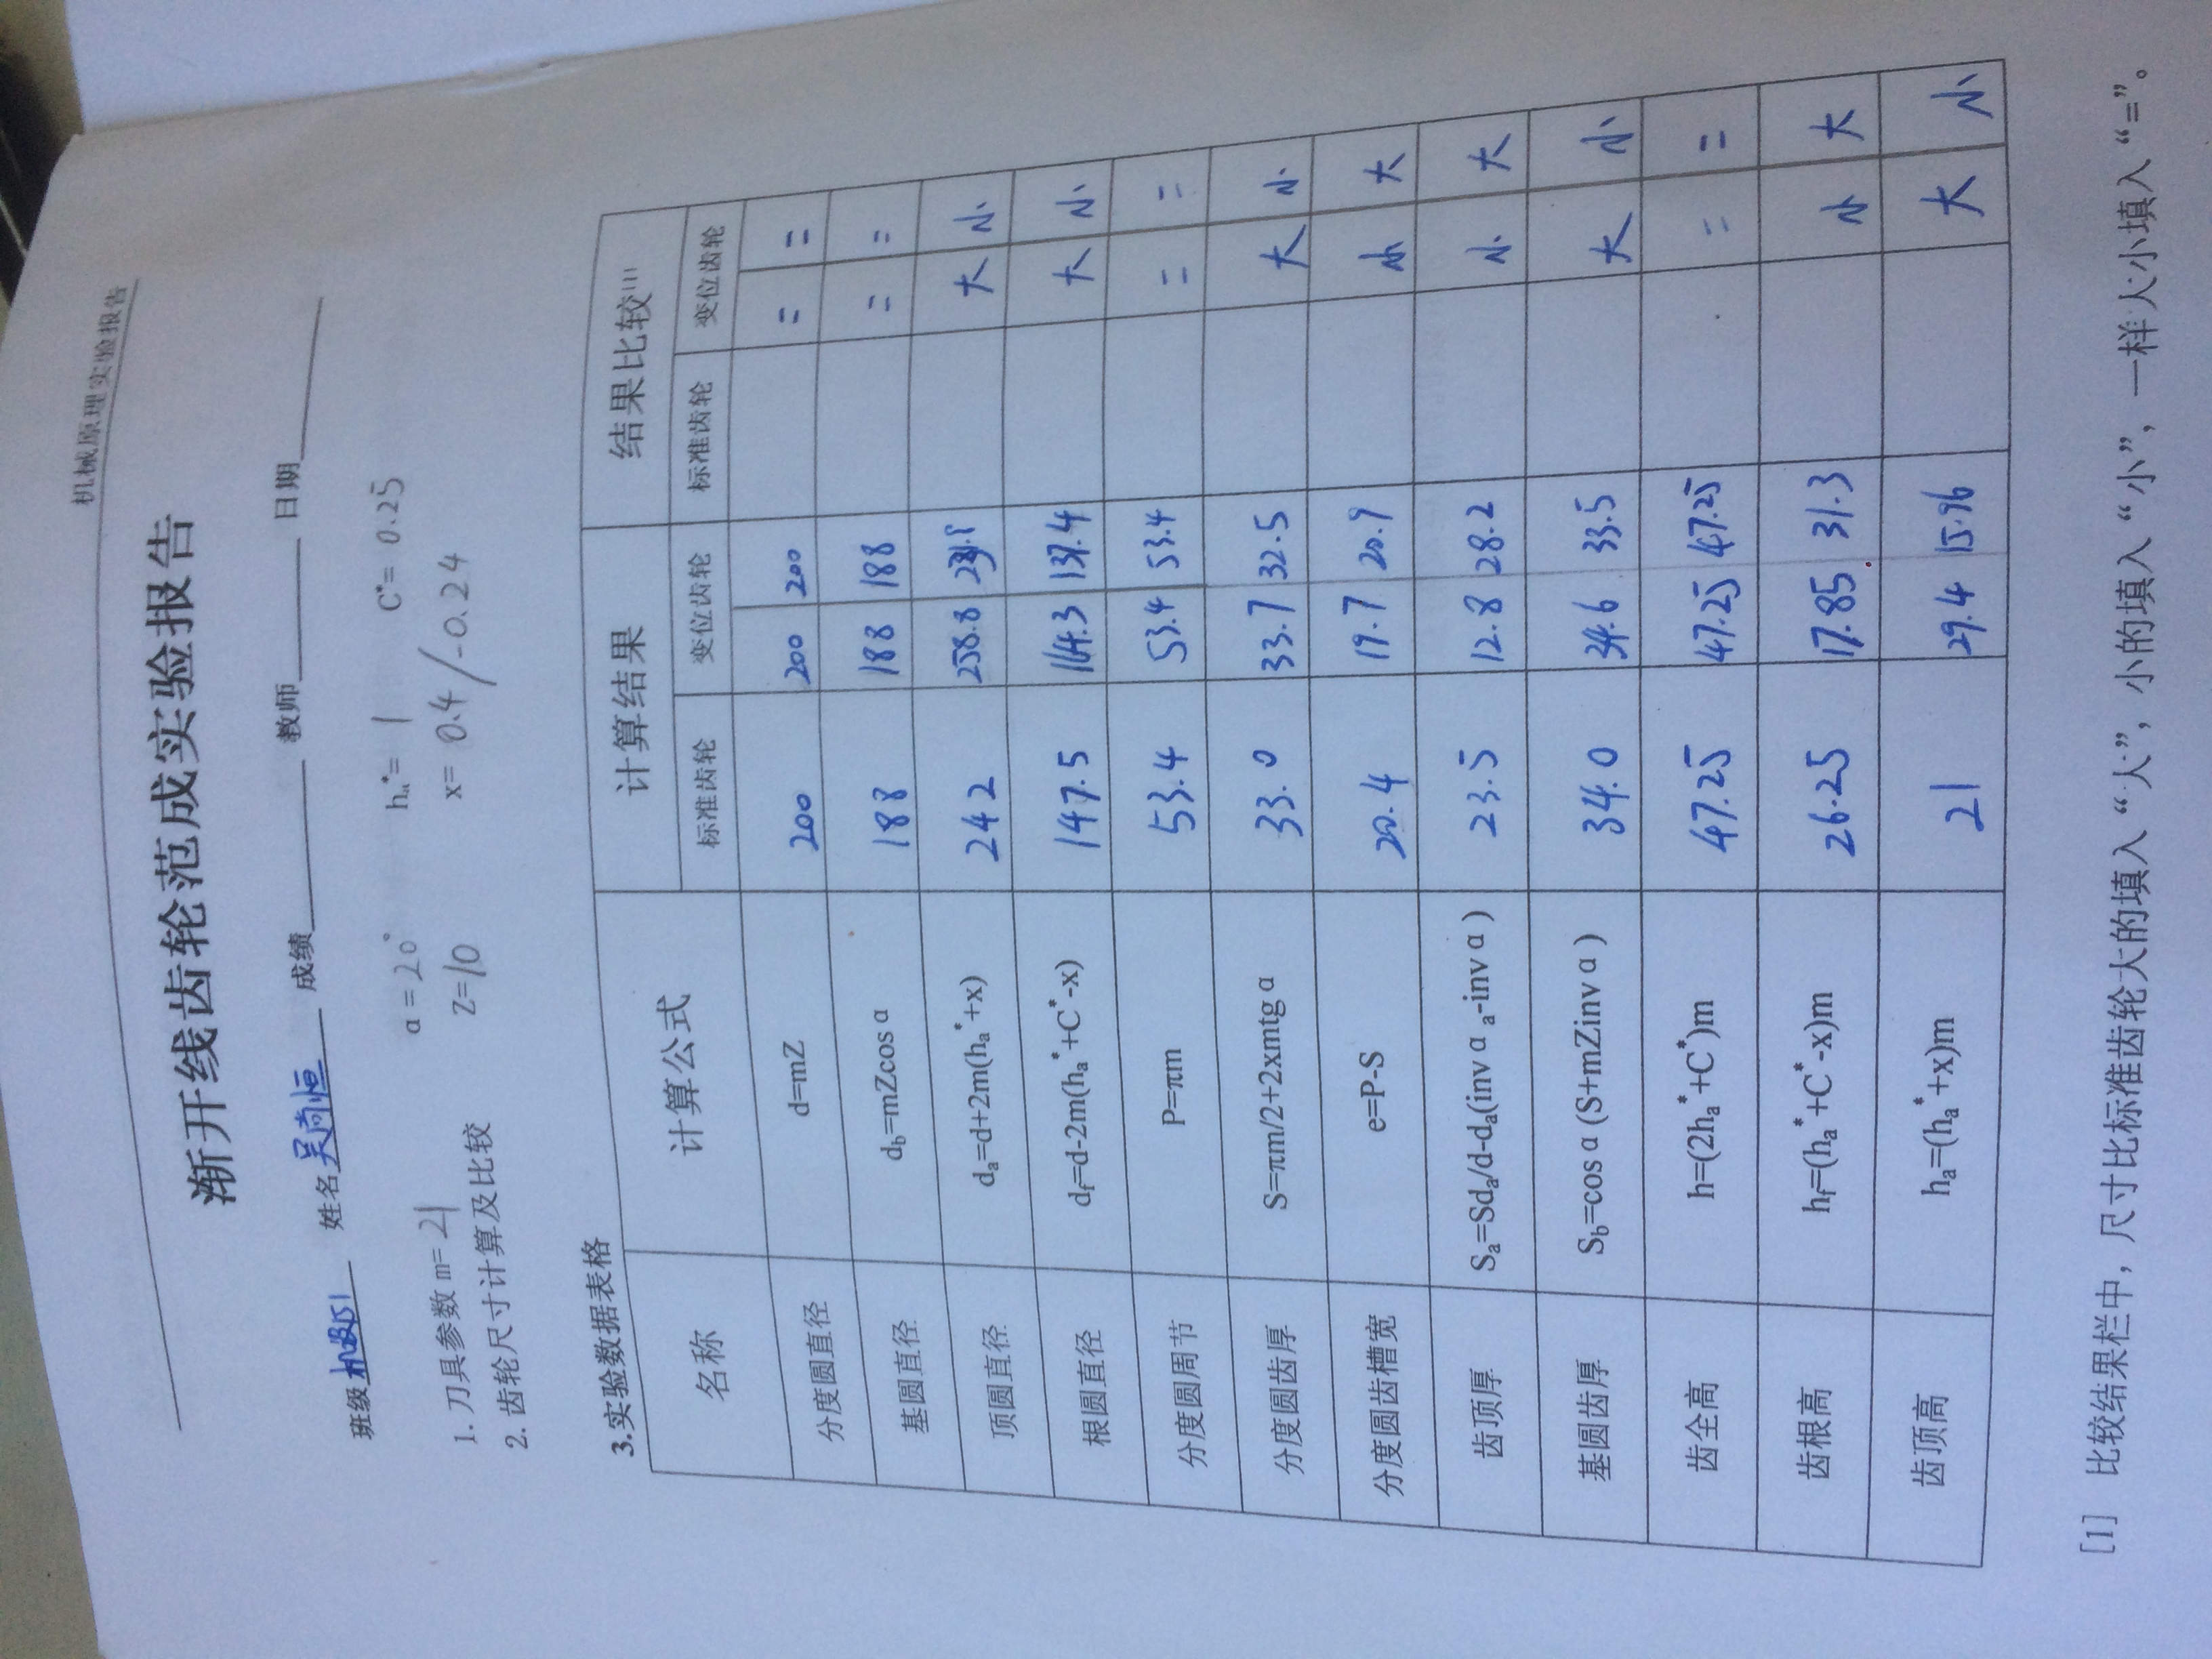 机械原理实验报告
渐开线齿轮范成实验报告
班级机设151 姓名吴尚恒 成绩 教师 日期
1.刀具参数 m=21 α=20° ha*=1 C*=0.25
2.齿轮尺寸计算及比较 Z=10 x=0.4/-0.24
3.实验数据表格
名称 计算公式 计算结果 结果比较[1]
标准齿轮 变位齿轮 标准齿轮 变位齿轮
分度圆直径 d=mZ 200 200 200 = =
基圆直径 db=mZcosα 188 188 188 = =
顶圆直径 da=d+2m(ha*+x) 242 258.8 大 小
根圆直径 df=d-2m(ha*+C*-x) 147.5 164.3 137.4 大 小
分度圆周节 P=πm 53.4 53.4 53.4 = =
分度圆齿厚 S=πm/2+2xmtgα 33.0 33.7 32.5 大 小
分度圆齿槽宽 e=P-S 20.4 19.7 20.9 小 大
齿顶厚 Sa=Sda/d-da(invαa-invα) 23.5 12.8 28.2 小 大
基圆齿厚 Sb=cosα(S+mZinvα) 34.0 34.6 33.5 大 小
齿全高 h=(2ha*+C*)m 47.25 47.25 47.25 = =
齿根高 hf=(ha*+C*-x)m 26.25 17.85 31.3 小 大
齿顶高 ha=(ha*+x)m 21 29.4 15.96 大 小
[1] 比较结果栏中，尺寸比标准齿轮大的填入“大”，小的填入“小”，一样大小填入“=”。